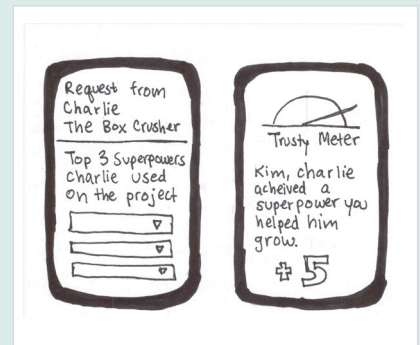 Request from
Charlie
The Box Crusher
Top 3 Superpowers
Charlie used
on the project
Trusty Meter
Kim, charlie
acheived a
superpower you
helped him
grow.
+5